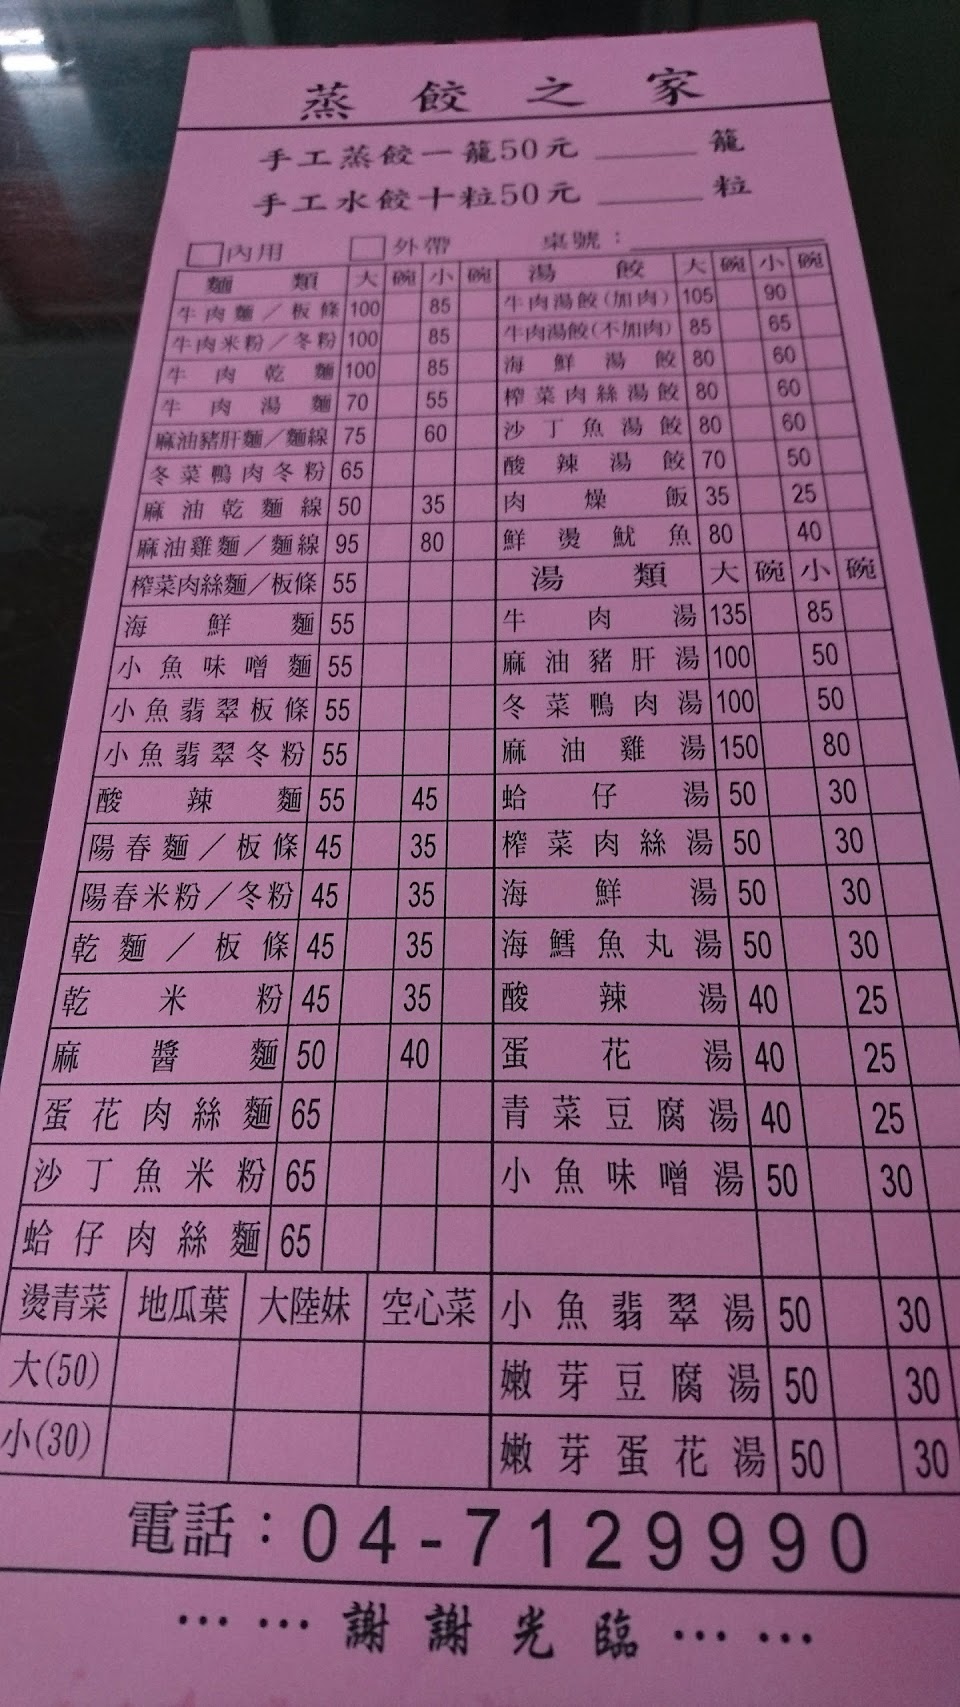 蒸餃之家
手工蒸餃一籠50元 ______ 籠
手工水餃十粒50元 ______ 粒
□內用 □外帶 桌號：
麵類 大 碗 小 碗 湯餃 大 碗 小 碗
牛肉麵／板條 100 85 牛肉湯餃(加肉) 105 90
牛肉米粉／冬粉 100 85 牛肉湯餃(不加肉) 85 65
牛肉乾麵 100 85 海鮮湯餃 80 60
牛肉湯麵 70 55 榨菜肉絲湯餃 80 60
麻油豬肝麵／麵線 75 60 沙丁魚湯餃 80 60
冬菜鴨肉冬粉 65 酸辣湯餃 70 50
麻油乾麵線 50 35 肉燥飯 35 25
麻油雞麵／麵線 95 80 鮮燙魷魚 80 40
榨菜肉絲麵／板條 55 湯類 大 碗 小 碗
海鮮麵 55 牛肉湯 135 85
小魚味噌麵 55 麻油豬肝湯 100 50
小魚翡翠板條 55 冬菜鴨肉湯 100 50
小魚翡翠冬粉 55 麻油雞湯 150 80
酸辣麵 55 45 蛤仔湯 50 30
陽春麵／板條 45 35 榨菜肉絲湯 50 30
陽春米粉／冬粉 45 35 海鮮湯 50 30
乾麵／板條 45 35 海鱈魚丸湯 50 30
乾米粉 45 35 酸辣湯 40 25
麻醬麵 50 40 蛋花湯 40 25
蛋花肉絲麵 65 青菜豆腐湯 40 25
沙丁魚米粉 65 小魚味噌湯 50 30
蛤仔肉絲麵 65
燙青菜 地瓜葉 大陸妹 空心菜 小魚翡翠湯 50 30
大(50) 嫩芽豆腐湯 50 30
小(30) 嫩芽蛋花湯 50 30
電話：04-7129990
⋯ ⋯ 謝謝光臨 ⋯ ⋯